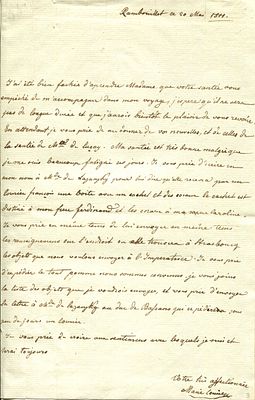 Rambouillet ce 20 Mai 1811.
J'ai été bien fachée d'aprendre Madame que votre santée vous
empêché de m'accompagner dans mon voyage, j'espere qu'il ne sera
pas de longue durée et que j'aurois bientôt le plaisir de vous revoire.
En attendant je vous prie de me donner de vos nouvelles, et de celles de
la santée de Mde. de Luçay. Ma santée est très bonne malgré que
je me sois beaucoup fatiguée ces jours. Je vous prie d'écrire en
mon nom à Mde. de Lazansky
courier françois une boite avec un cachet et des
destiné à mon frere ferdinand et les à ma sœur Caroline.
Je vous prie en même tems de lui envoyer en même tems
les renseignemens sur l'endroit ou elle trouvera à Strasbourg
les objets que nous voulons envoyer à l'Imperatrice. Je vous prie
d'expédier le tout comme nous sommes convenues, je vous joins
la liste des objets que je voudrois envoyer, et vous prie d'envoyer
la lettre à Mde. de Lazansky au duc de Bassano
jour un courier.
Je vous prie de croire aux sentimens avec lesquels je suis et
serai toujours
Votre très affectionnée
Marie Louise